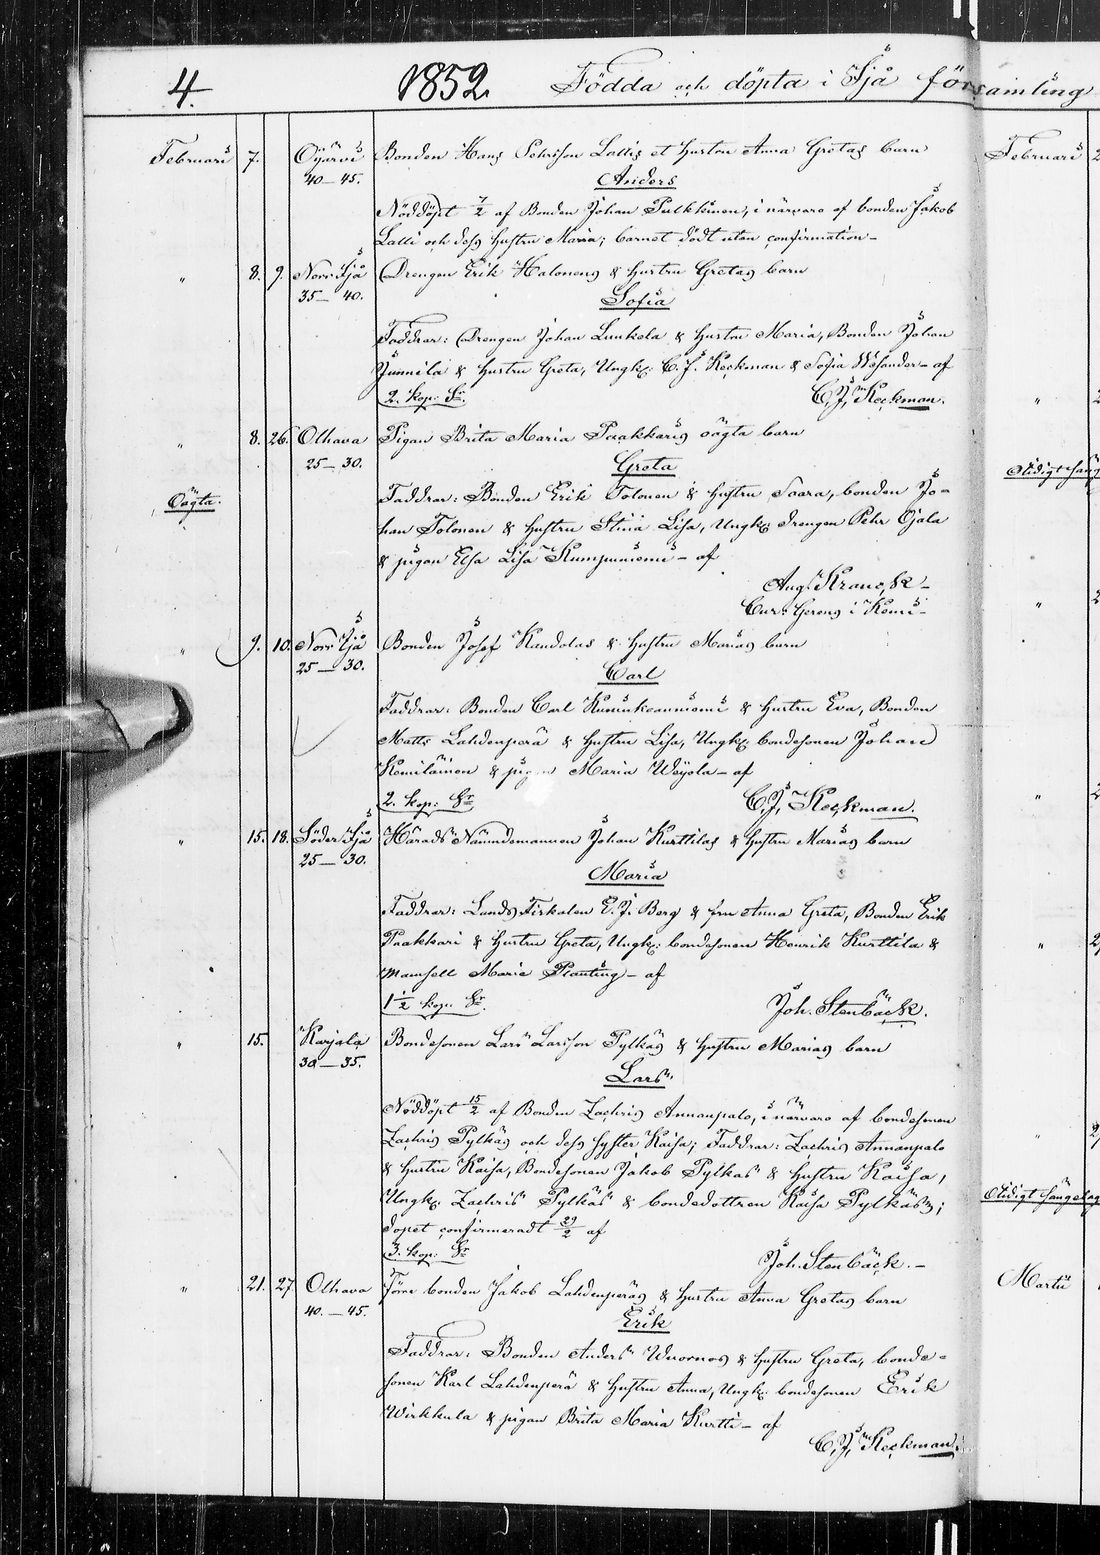 4. 1852. Födda och döpta i Ijå församling
Februari 7. Oijärvi Bonden Hans Pehrsson Lallis et hustru Anna Gretas barn
40–45. Anders
Nöddöpt 7/2 af Bonden Johan Pulkkinen, i närvaro af bonden Jakob
Lalli och dess hustru Maria; barnet dödt utan confirmation–
" 8. 9. Norr Ijå Drengen Erik Halonens & hustru Gretas barn
35– 40. Sofia
Faddrar: Drengen Johan Lunkela & hustru Maria, Bonden Johan
Junnila & hustru Greta, Ungk: C. J. Keckman & Sofia – af
2. kop: Sr. C. J. Keckman.
" 8. 26. Olhava Pigan Brita Maria Paakkaris oägta barn
25– 30. Greta
Oägta. Faddrar: Bonden Erik Tolonen & hustru Saara, bonden Jo-
han Tolonen & hustru Stina Lisa, Ungk: drengen Pehr Ojala
& pigan Elsa Lisa Kumpuniemi – af
Aug. Kranck–
Cur: Gerens i Kemi–
" 9. 10. Norr Ijå Bonden Josef Kandolas & hustru Marias barn
25– 30. Carl
Faddrar: Bonden Carl & hustru Eva, Bonden
Matts Lahdenperä & hustru Lisa, Ungk: bondesonen Johan
Komiläinen & pigan Maria Weijola – af
2. kop: Sr C. J. Keckman.
" 15. 18. Söder Ijå Härads Nämndemannen Johan Kurttilas & hustru Marias barn
25– 30. Maria
Faddrar: Lands Fiskalen E. J. Berg & fru Anna Greta, Bonden Erik
Paakkari & hustru Greta, Ungk: bondesonen Henrik Kurttila &
Mamsell Maria Planting – af
1 1/2 kop: Sr. Joh. Stenbäck.
" 15. Karjala Bondesonen Lars Larsson Pylkäs & hustru Marias barn
30– 35. Lars
Nöddöpt 15/2 af Bonden Zachris Annanpalo, i närvaro af bondesonen
Zachris Pylkäs och dess syster Kaisa; Faddrar: Zachris Annanpalo
& hustru Kaisa, Bondesonen Jakob Pylkäs & hustru Kaisa,
Ungk: Zachris Pylkäs & bondedottren Kaisa Pylkäs;
dopet confirmeradt 29/2 af
3. kop: Sr Joh. Stenbäck.–
" 21. 27. Olhava Förre bonden Jakob Lahdenperäs & hustru Anna Gretas barn
40.–45. Erik
Faddrar: Bonden Anders Wuornos & hustru Greta, bonde-
sonen Karl Lahdenperä & hustru Anna, Ungk: bondesonen Erik
Wirkkula & pigan Brita Maria Kurtti – af
C. J. Keckman.
Februari
Martii